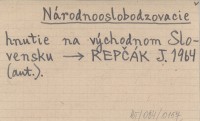 Národnooslobodzovacie
hnutie na východnom Slo-
vensku → REPČÁK J. 1964
(aut.).